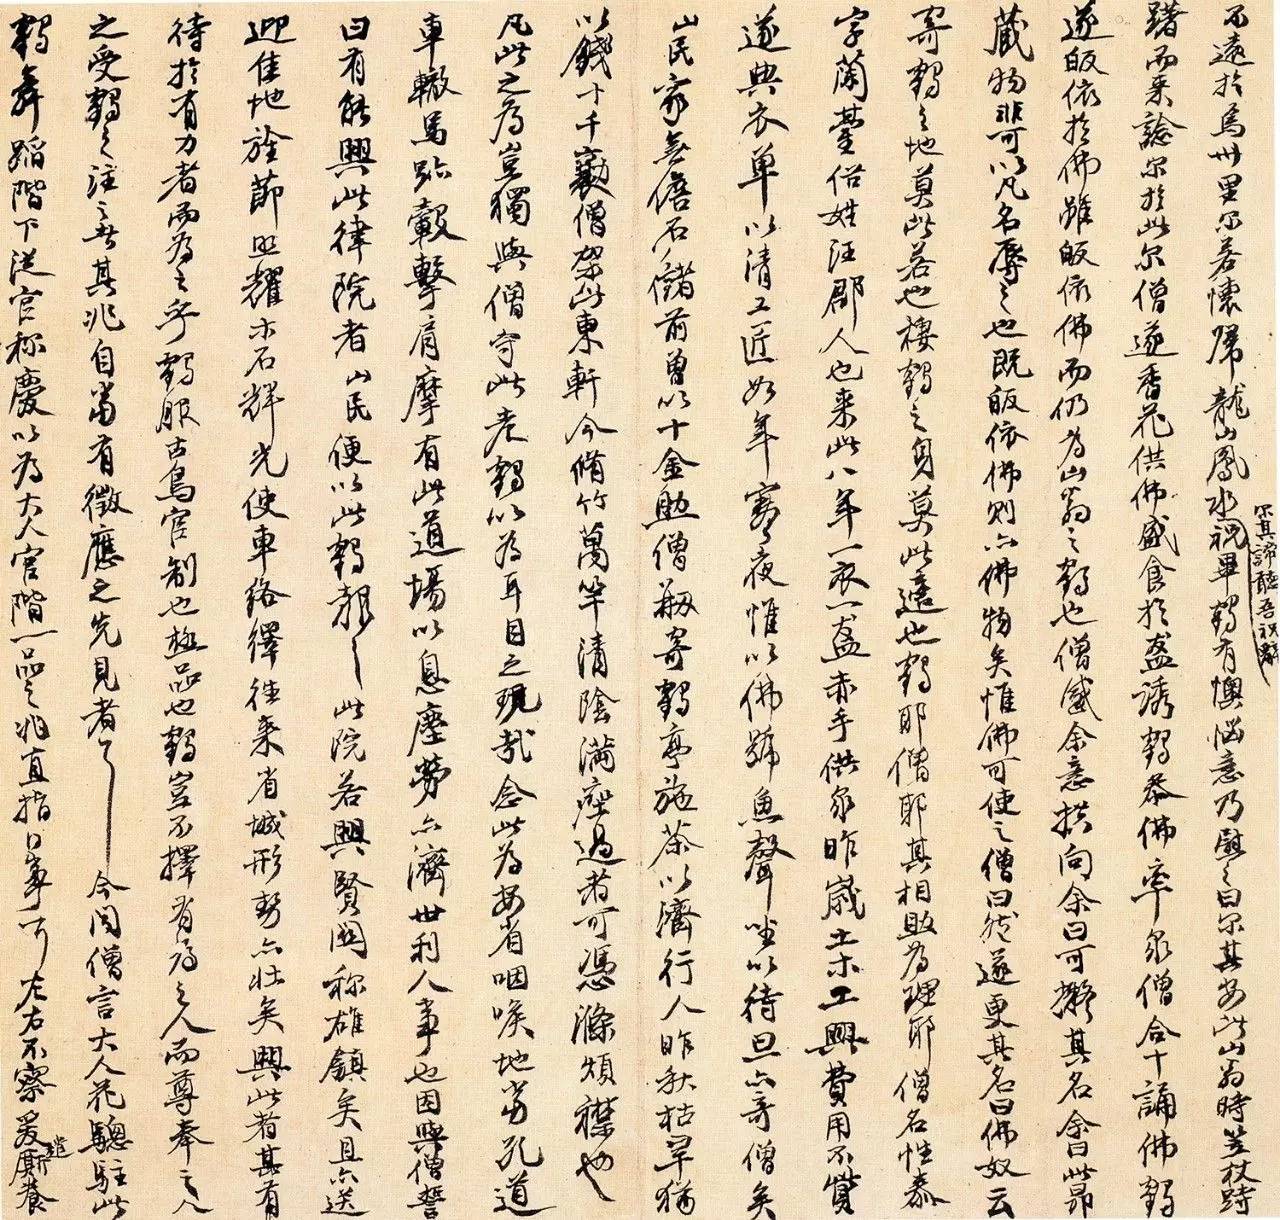 不遠於烏卅里尔若懷歸龍山鳳沚祝畢鶴有懊惱意乃慰之曰尔其安此山翁時笠杖跨
尔其諦聽吾祝辭
躇而来諗尔於此尔僧遂香花供佛盛食於盋誘鶴叅佛率众僧合十誦佛鶴
遂皈依於佛雖皈依佛而仍为山翁之鶴也僧感余意拱向余曰可擬其名余曰此昂
藏物非可以凡名辱之也既皈依佛則亦佛物矣惟佛可使之僧曰然遂更其名曰佛奴云
寄鶴之地莫此若也棲鶴之身莫此適也鶴耶僧耶其相助为理耶僧名性泰
字蘭臺俗姓汪郡人也来此八年一衣一盋赤手供众昨歲土木工興費用不貲
遂典衣单以清工匠如年寒夜惟以佛號魚聲坐以待旦亦奇僧矣
山民家無儋石儲前曾以十金助僧剏寄鶴亭施茶以濟行人昨秋枯旱猶
以錢十千勷僧架此東軒今脩竹萬竿清陰滿座過者可憑滌煩襟也
凡此之为豈獨與僧守此老鶴以为耳目之玩哉念此为安省咽喉地当孔道
車轍馬跡轂擊肩摩有此道場以息塵勞亦濟世利人事也因與僧誓
曰有能興此律院者山民便以此鶴報之此院若興賢関称雄鎮矣且亦送
迎佳地旌節照耀木石輝光使車络繹往来省城形势亦壮矣興此者其有
待於有力者而为之乎鶴服古鳥官制也極品也鶴豈不擇有为之人而尊奉之人
之受鶴之注之者其兆自當有徵應之先見者今聞僧言大人花驄駐此
鶴舞蹈階下從官称慶以为大人官階一品之兆直指日事耳左右不察爰遣厮養